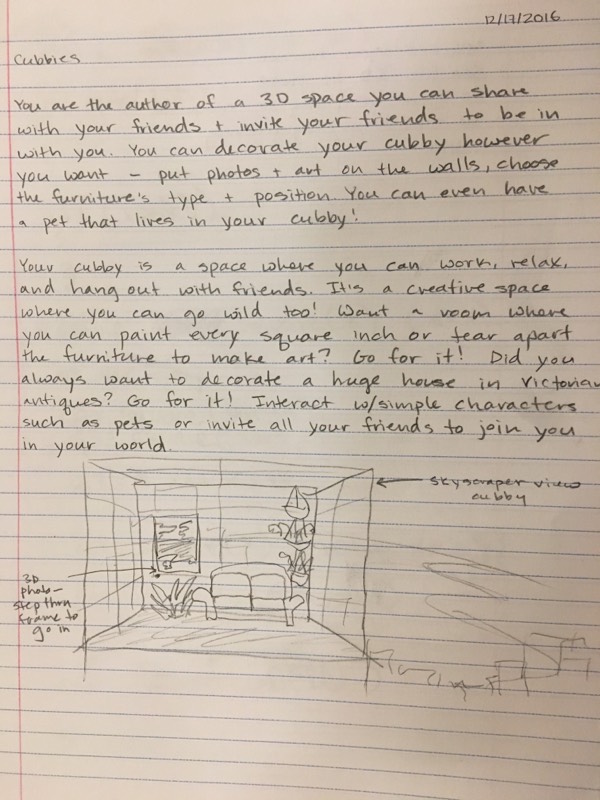 12/17/2016
Cubbies
You are the author of a 3D space you can share
with your friends + invite your friends to be in
with you. You can decorate your cubby however
you want - put photos + art on the walls, choose
the furniture's type + position. You can even have
a pet that lives in your cubby!
Your cubby is a space where you can work, relax,
and hang out with friends. It's a creative space
where you can go wild too! Want a room where
you can paint every square inch or tear apart
the furniture to make art? Go for it! Did you
always want to decorate a huge house in Victorian
antiques? Go for it! Interact w/simple characters
such as pets or invite all your friends to join you
in your world.
skyscraper view
cubby
3D
photo-
step thru
frame to
go in